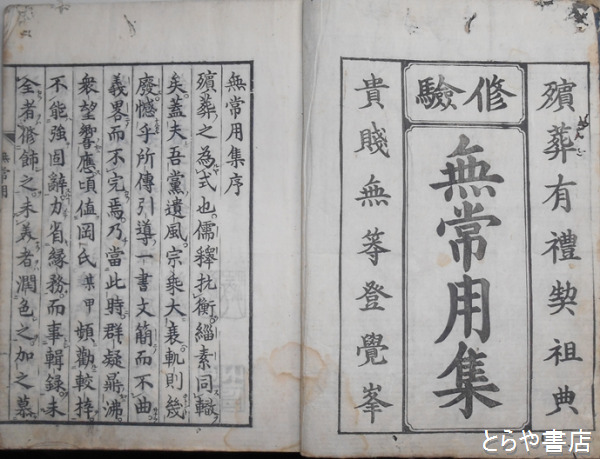 殯葬有禮契祖典
修驗
無常用集
貴賤無等登覺峯
無常用集序
殯葬之為式也儒釋抗衡緇素同轍
矣蓋夫吾黨遺風宗乘大衰軌則幾
廢憾乎所傳引導一書文簡而不曲
義畧而不完焉乃當此時群疑鼎沸
衆望響應頃値岡氏某甲頻勸較
不能強固辭力省緣務而事輯錄未
全者修飾之未美者潤色之加之慕
無常用
とらや書店